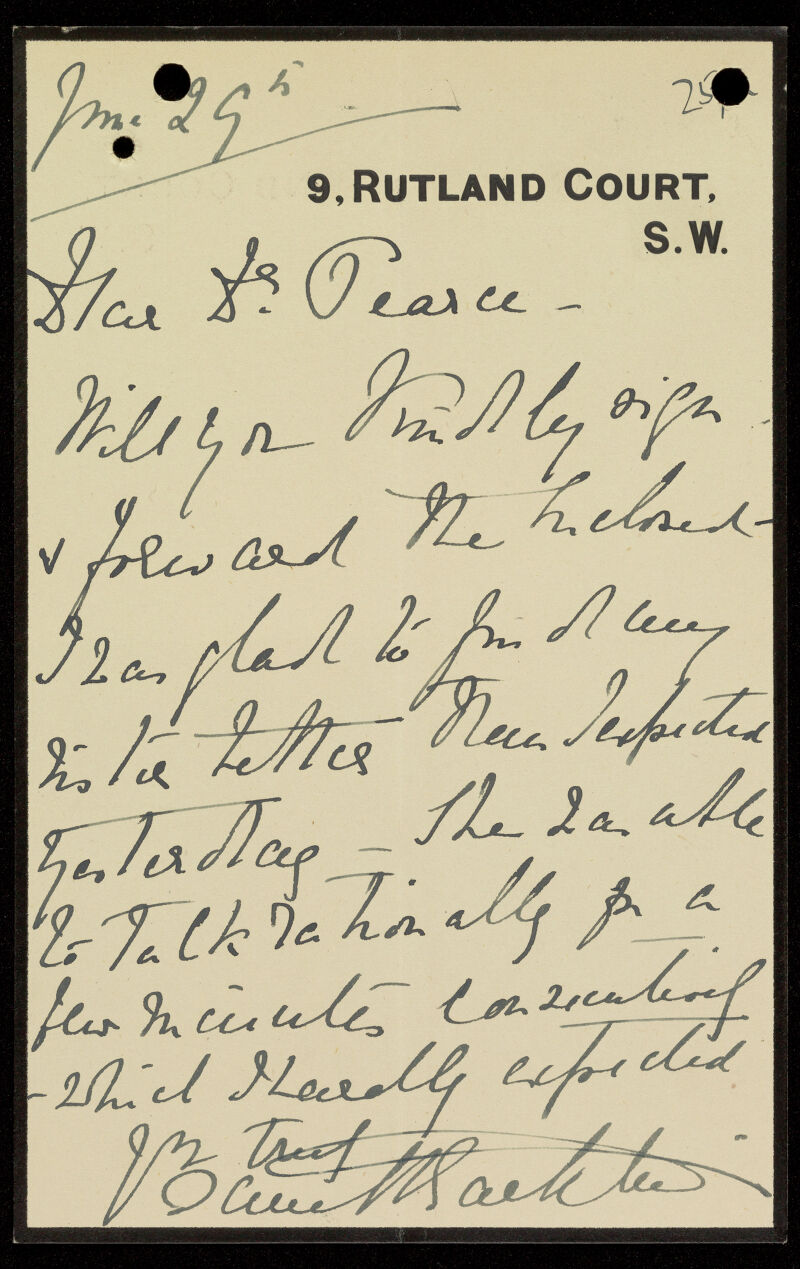 June 29th
9, RUTLAND COURT,
S.W.
Dear Dr. Pearce –
Will you kindly sign
& forward the enclosed –
I was glad to find my
sister better than I expected
yesterday – She was able
to talk rationally for a
few minutes consecutively
– which I hardly expected
Yrs truly